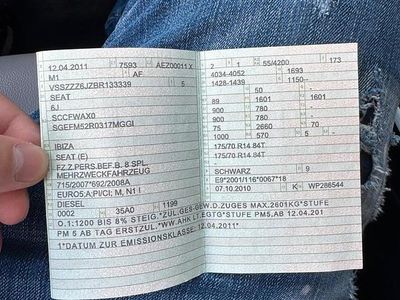 12.04.2011 7593 AEZ00011 X
M1 AF
VSSZZZ6JZBR133339 5
SEAT
6J
SCCFWAX0
SGEFM52R0317MGGI
IBIZA
SEAT (E)
FZ.Z.PERS.BEF.B. 8 SPL.
MEHRZWECKFAHRZEUG
715/2007*692/2008A
EURO5;A;PI/CI; M, N1 I
DIESEL
0002 35A0 1199
2 1 55/4200 173
4034-4052 1693
1428-1439 1150--
50 0
89 1601 1601
900 790
900 790
75 2660 70
1000 570 5
175/70 R14 84T
175/70 R14 84T
SCHWARZ 9
E9*2001/116*0067*18
07.10.2010 K WP286544
O.1:1200 BIS 8% STEIG.*ZUL.GES-GEW.D.ZUGES MAX.2601KG*STUFE
PM 5 AB TAG ERSTZUL.*WW.AHK LT.EGTG*STUFE PM5 AB 12.04.201
1*DATUM ZUR EMISSIONSKLASSE: 12.04.2011*